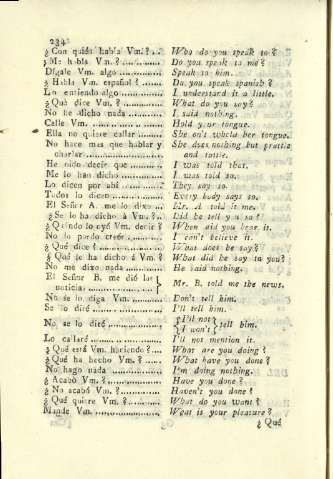 234
¿ Con quién habla Vm. ? ... Who do you speak to ?
¿ Me habla Vm. ? ............ Do you speak to me ?
Dígale Vm. algo ............ Speak to him.
¿ Habla Vm. español ? ...... Do you speak spanish ?
Lo entiendo algo ............ I understand it a little.
¿ Qué dice Vm. ? ............ What do you say?
No he dicho nada ............ I said nothing.
Calle Vm. ............ Hold your tongue.
Ella no quiere callar ......... She on't whola her tongue.
No hace mas que hablar y She does nothing but prattle
charlar ............ and tattle.
He oido decir que ............ I was told that.
Me lo han dicho ............ I was told so.
Lo dicen por ahí ............ They say so.
Todos lo dicen ............ Every body says so.
El Señor A. me lo dixo ... Mr. A. told it me.
¿ Se lo ha dicho á Vm. ? .. Did he tell you so !
¿ Quándo lo oyó Vm. decir ? When did you hear it.
No lo puedo creer ............ I can't believe it.
¿ Qué dice ? ............ What does he say ?
¿ Qué le ha dicho á Vm. ? What did he say to you ?
No me dixo nada ............ He said nothing.
El Señor B. me dió las } Mr. B. told me the news.
noticias ............
No se lo diga Vm. ............ Don't tell him.
Se lo diré ............ I'll tell him.
No, se lo diré ............ { I'll not } tell him.
{ I won't }
Lo callaré ............ I'll not mention it.
¿ Qué está Vm. haciendo ? .... What are you doing ?
¿ Qué ha hecho Vm. ? ...... What have you done ?
No hago nada ............ I'm doing nothing.
¿ Acabó Vm. ? ............ Have you done ?
¿ No acabó Vm. ? ............ Haven't you done !
¿ Qué quiere Vm. ? ......... What do you want ?
Mande Vm. ............ What is your pleasure ?
¿ Qué